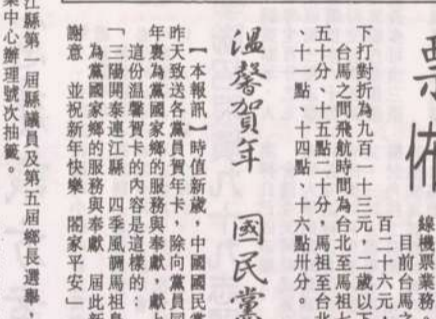 票佈
線機票業務。
目前台馬之
百二十六元，
下打對折為九百一十三元，二歲以下
台馬之間飛航時間為台北至馬祖七
五十分、十五點二十分，馬祖至台北
、十一點、十四點、十六點卅分。
溫馨賀年 國民黨
【本報訊】時值新歲，中國國民黨
昨天致送各黨員賀年卡，除向黨員同
年裏為黨國家鄉的服務與奉獻，獻上
這份溫馨賀卡的內容是這樣的：
「三陽開泰連江縣 四季風調馬祖島
為黨國家鄉的服務與奉獻 屆此新
謝意 並祝新年快樂 閤家平安」
江縣第一屆縣議員及第五屆鄉長選舉，
集中心辦理號次抽籤。